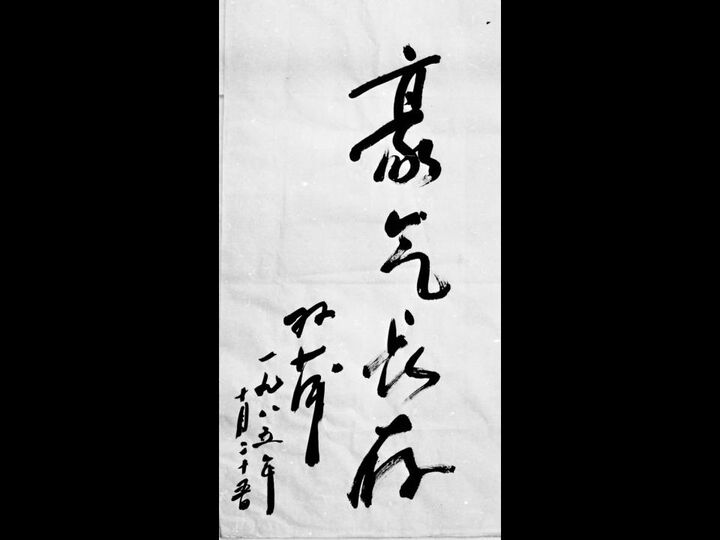 豪气长存
一九八五年
十月二十五日